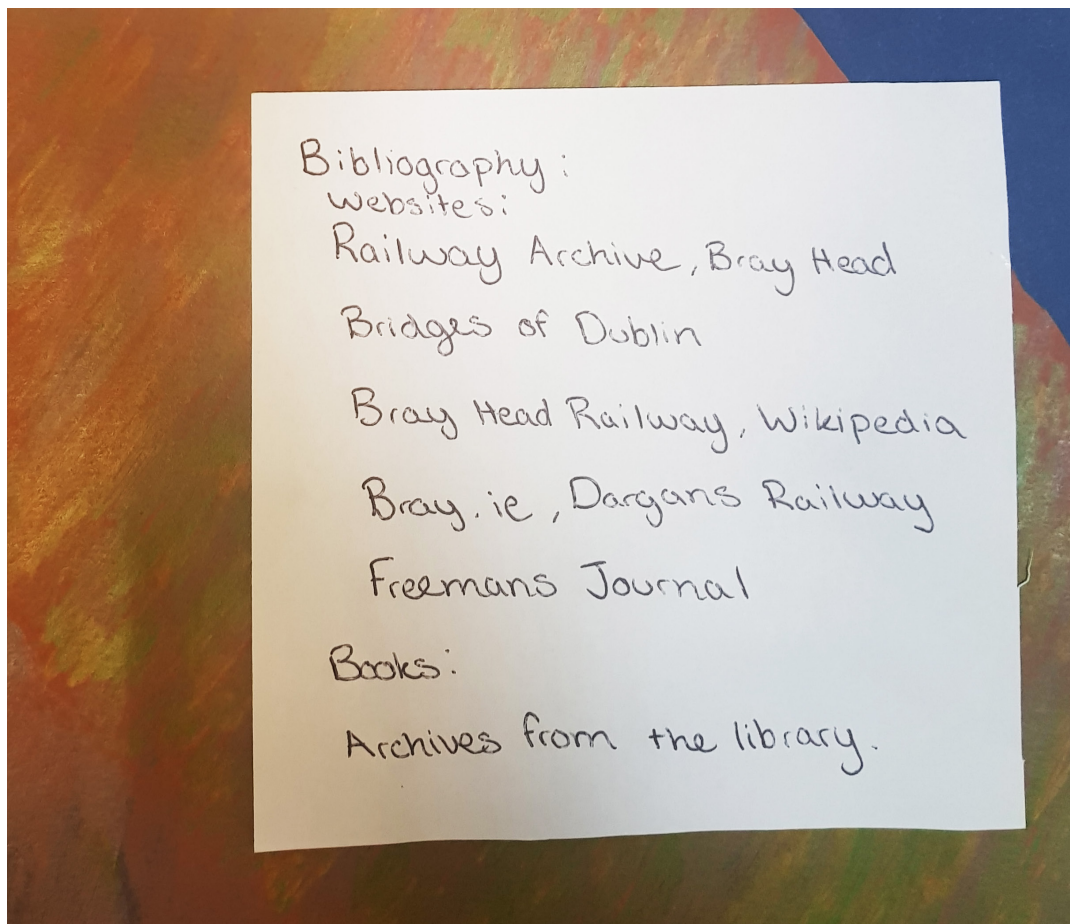 Bibliography:
Websites:
Railway Archive, Bray Head
Bridges of Dublin
Bray Head Railway, Wikipedia
Bray.ie, Dargans Railway
Freemans Journal
Books:
Archives from the library.